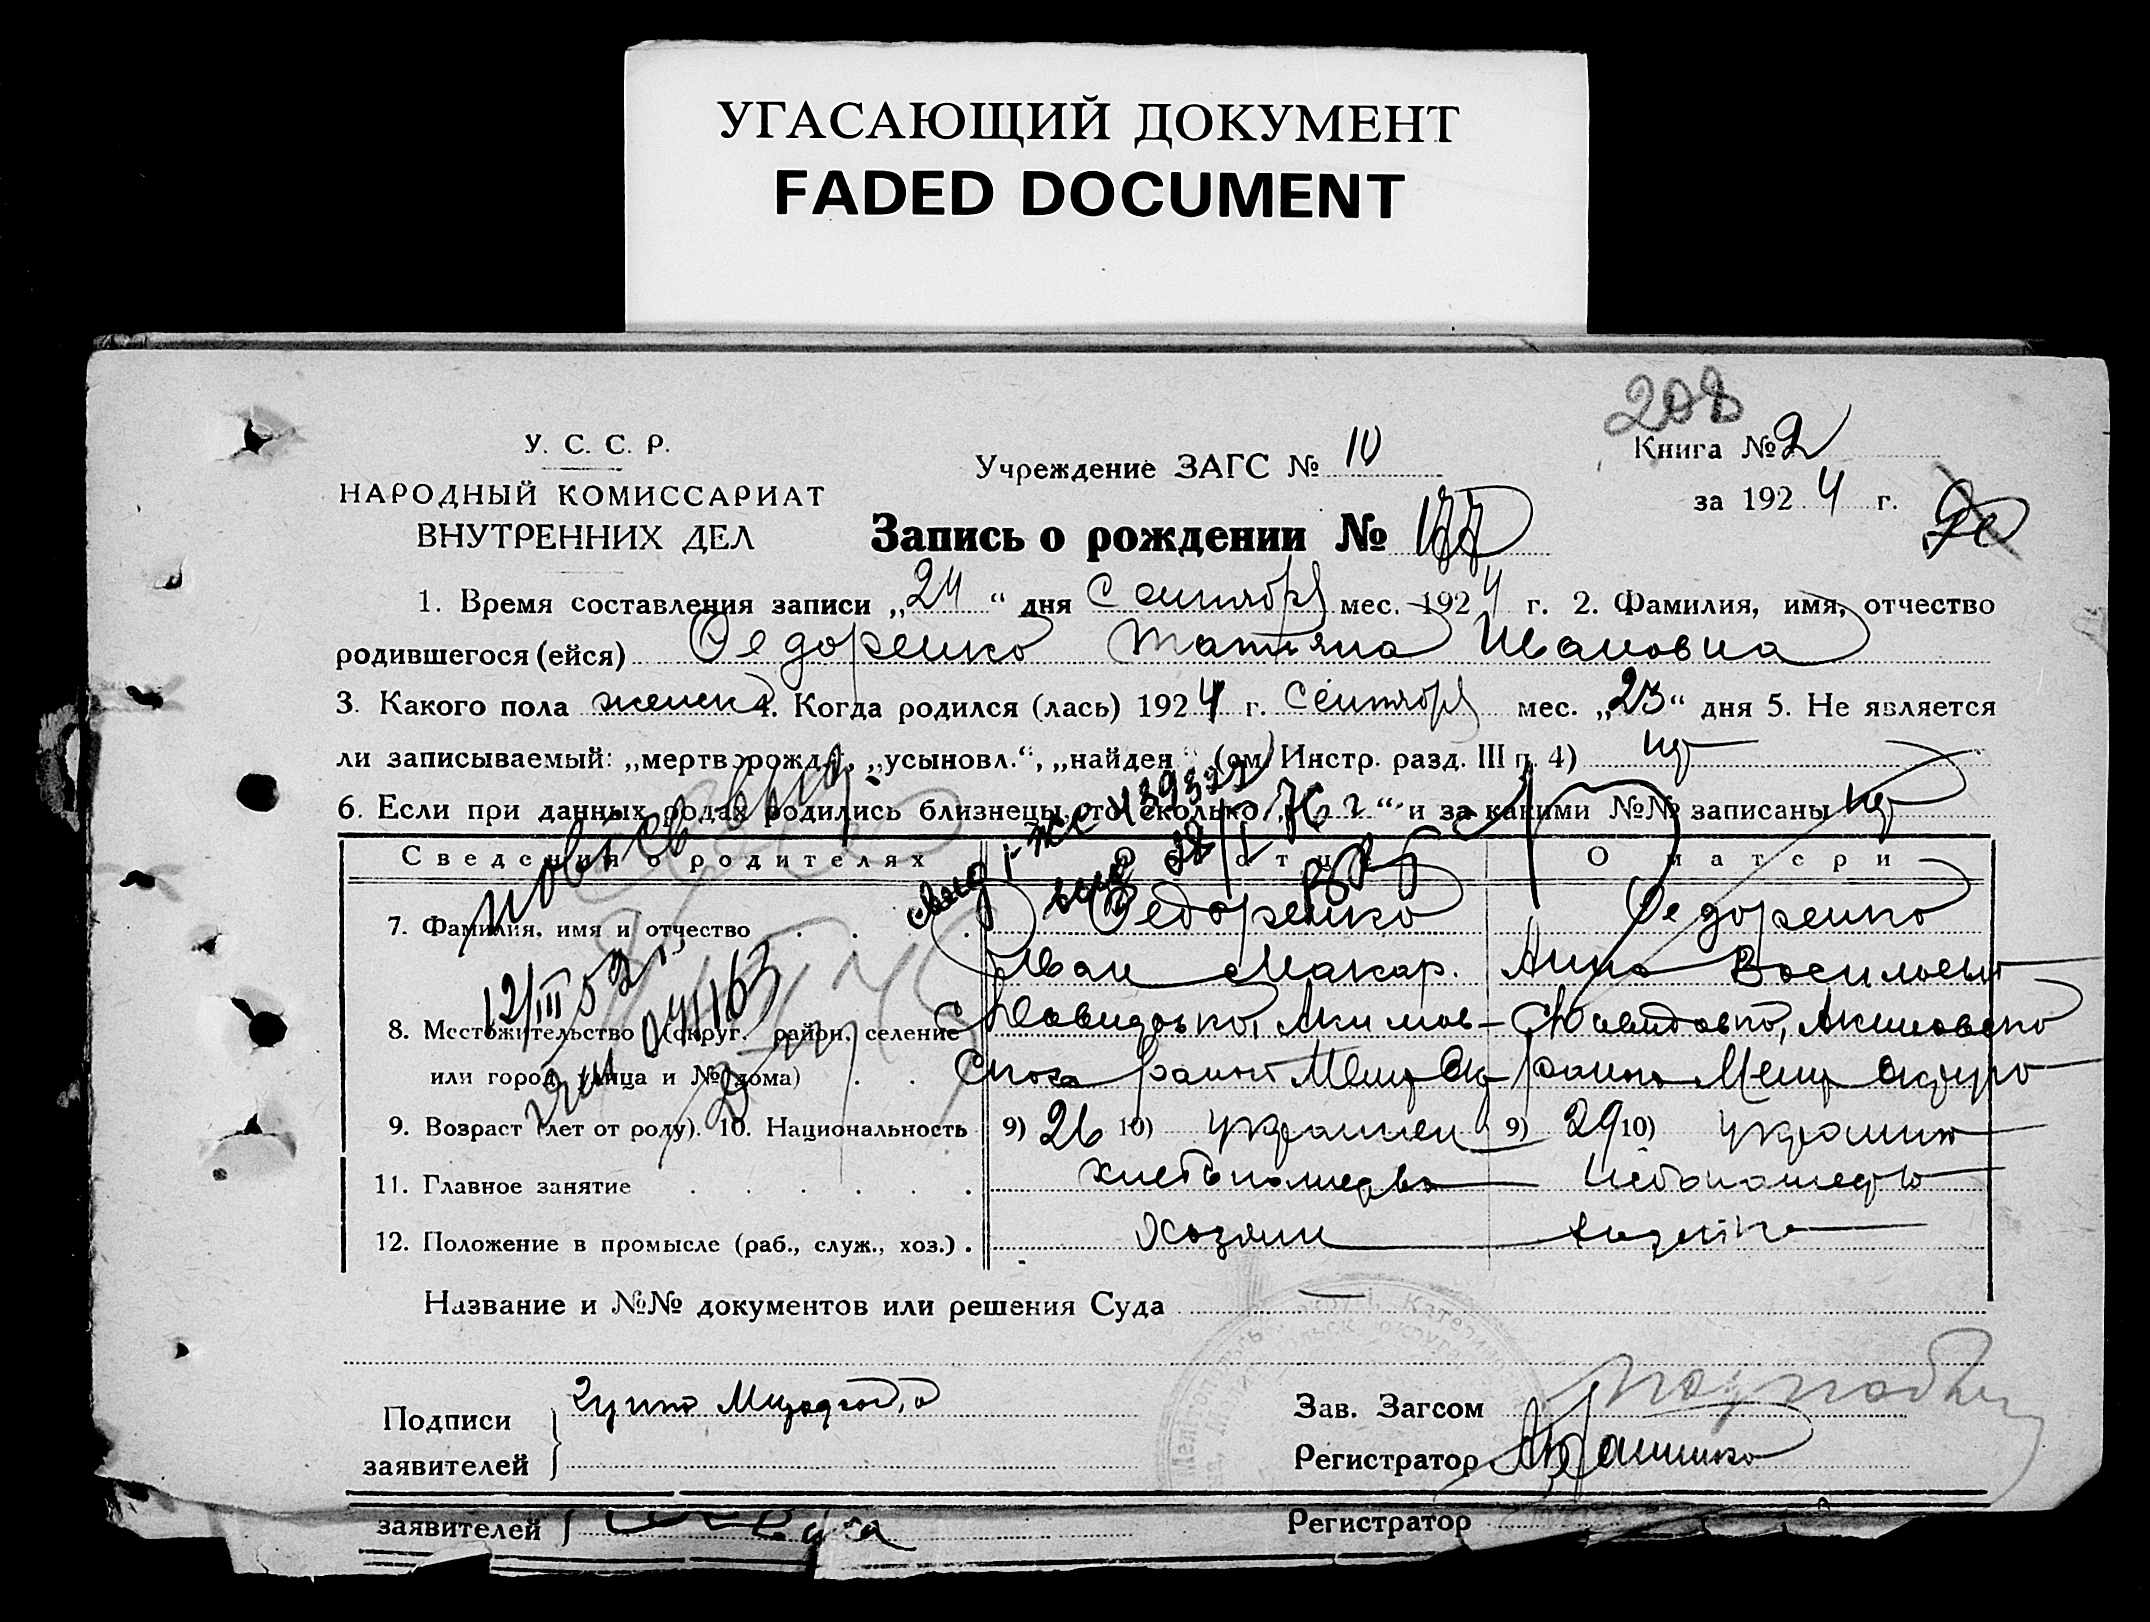 УГАСАЮЩИЙ ДОКУМЕНТ
FADED DOCUMENT
208
У. С. С. Р.
НАРОДНЫЙ КОМИССАРИАТ
ВНУТРЕННИХ ДЕЛ
Учреждение ЗАГС № 10
Книга № 2
за 1924 г.
Запись о рождении № 177
1. Время составления записи „24“ дня Сентября мес. 1924 г. 2. Фамилия, имя, отчество
родившегося (ейся) Федоренко Татьяна Ивановна
3. Какого пола женск 4. Когда родился (лась) 1924 г. Сентября мес. „23“ дня 5. Не является
ли записываемый: „мертворожд.“, „усыновл.“, „найден“ (см. Инстр. разд. III п. 4) нет
6. Если при данных родах родились близнецы, то сколько „ “ и за какими №№ записаны нет
Сведения о родителях О отце О матери
7. Фамилия, имя и отчество Федоренко Иван Макар. Федоренко Анна Васильевн
8. Местожительство (округ, район, селение или город, улица и № дома) С Давидовка, Акимов- Ского района Мелит Ок С Давидовка, Акимовско района Мелит округо
9. Возраст (лет от роду). 10. Национальность 9) 26 10) украинец 9) 29 10) украинк
11. Главное занятие хлебопашество хлебопашество
12. Положение в промысле (раб., служ., хоз.) Хозяин
повт св выд.
12/III 52 г.
Название и №№ документов или решения Суда —
Подписи
заявителей
Зав. Загсом
Регистратор
заявителей
Регистратор